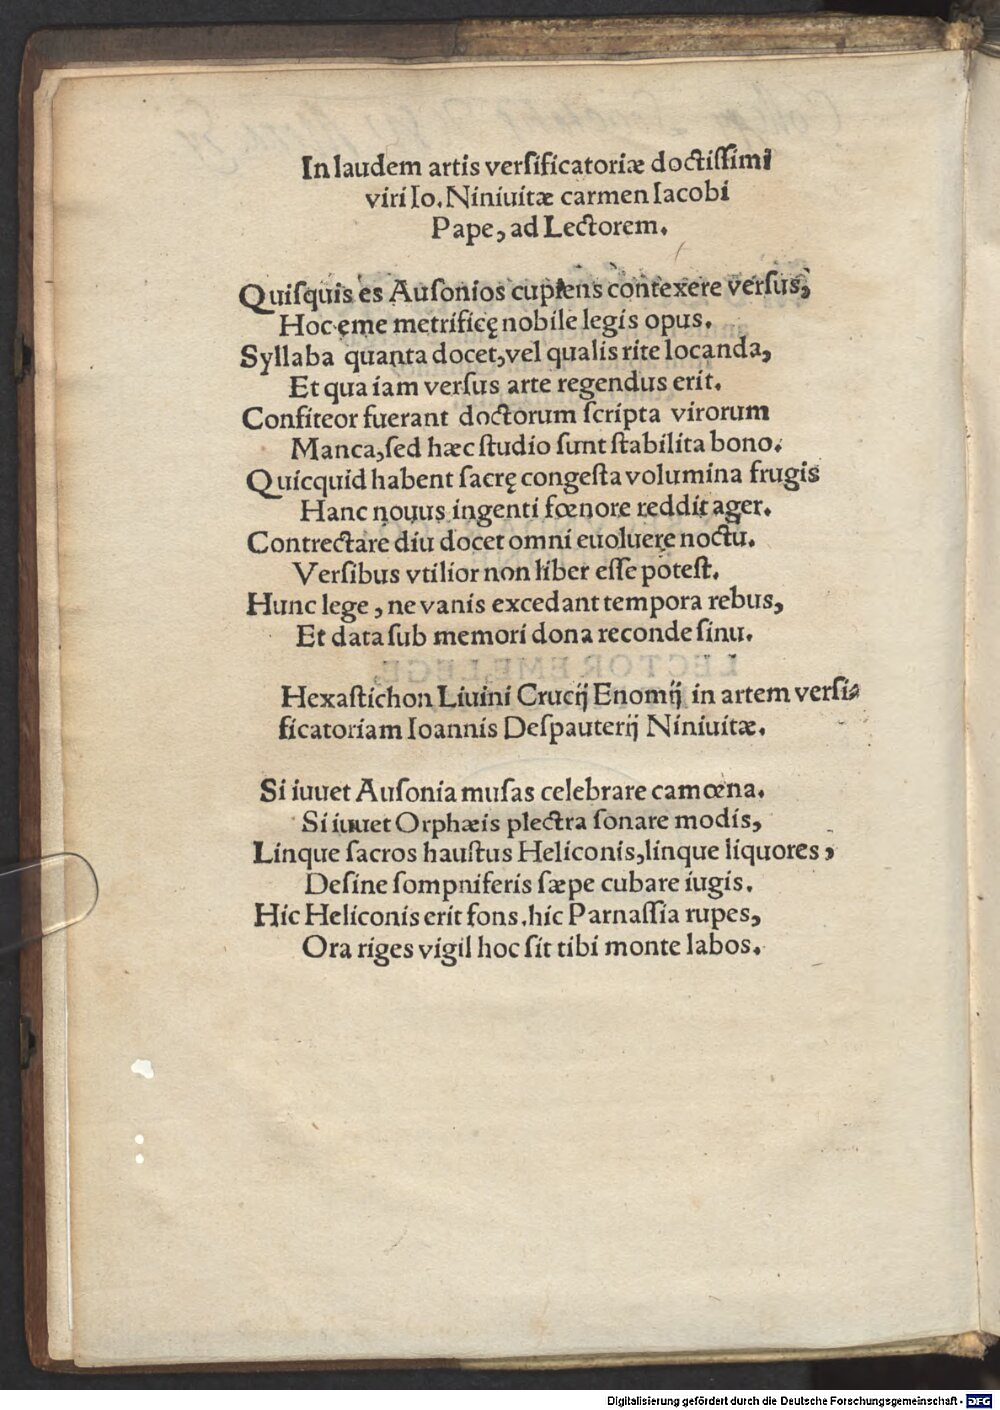 In laudem artis versificatoriæ doctissimi
viri Io. Niniuitæ carmen Iacobi
Pape, ad Lectorem.
Quisquis es Ausonios cupiens contexere versus,
Hoc eme metrificę nobile legis opus.
Syllaba quanta docet, vel qualis rite locanda,
Et qua iam versus arte regendus erit.
Confiteor fuerant doctorum scripta virorum
Manca, sed hæc studio sunt stabilita bono.
Quicquid habent sacrę congesta volumina frugis
Hanc nouus ingenti fœnore reddit ager.
Contrectare diu docet omni euoluere noctu.
Versibus vtilior non liber esse potest.
Hunc lege, ne vanis excedant tempora rebus,
Et data sub memori dona reconde sinu.
Hexastichon Liuini Crucij Enomij in artem versi-
ficatoriam Ioannis Despauterij Niniuitæ.
Si iuuet Ausonia musas celebrare camœna.
Si iuuet Orphæis plectra sonare modis,
Linque sacros haustus Heliconis, linque liquores,
Desine sompniferis sæpe cubare iugis.
Hic Heliconis erit fons, hic Parnassia rupes,
Ora riges vigil hoc sit tibi monte labos.
Digitalisierung gefördert durch die Deutsche Forschungsgemeinschaft - DFG